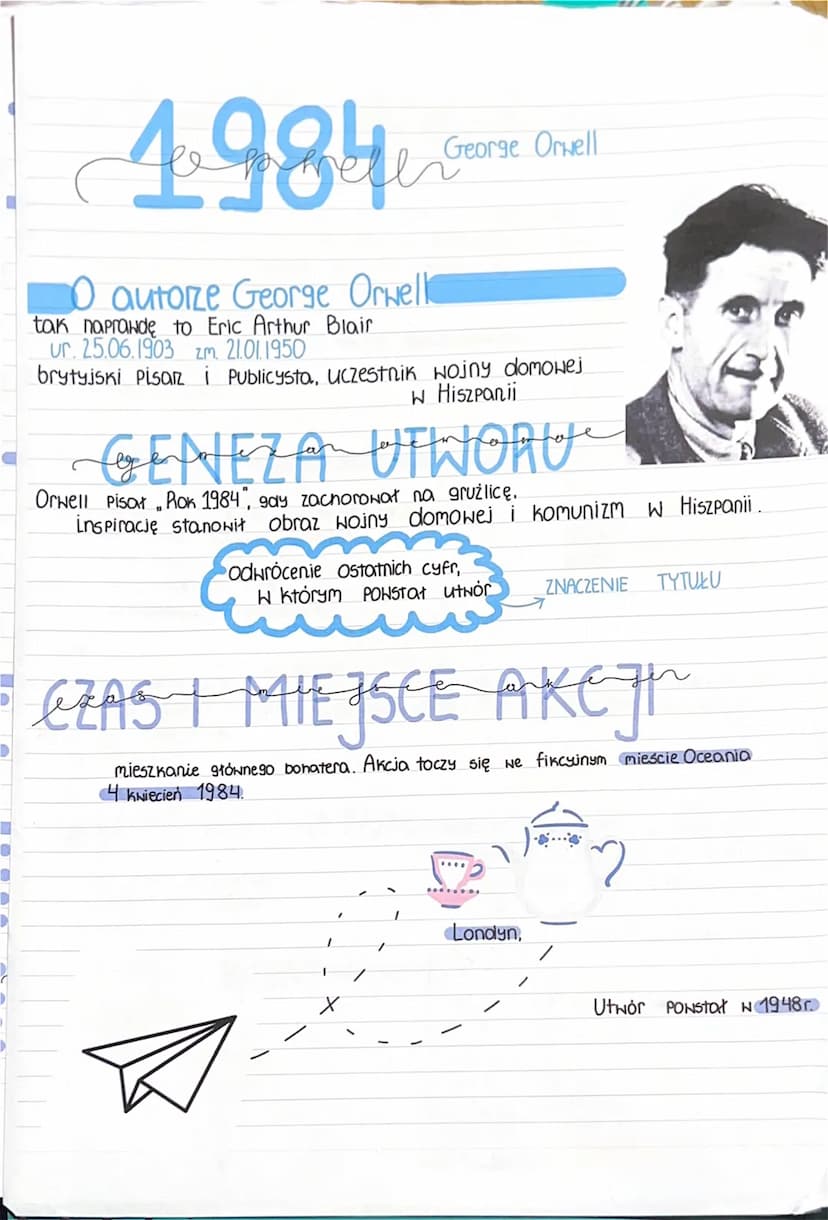 1984
orwell
George Orwell
O autorze George Orwell
tak naprawdę to Eric Arthur Blair
ur. 25.06.1903 zm. 21.01.1950
brytyjski pisarz i publicysta, uczestnik wojny domowej
w Hiszpanii
GENEZA UTWORU
Orwell pisał „Rok 1984", gdy zachorował na gruźlicę,
inspirację stanowił obraz wojny domowej i komunizm w Hiszpanii.
Odwrócenie ostatnich cyfr,
w którym powstał utwór
ZNACZENIE TYTUŁU
CZAS I MIEJSCE AKCJI
czas i miejsce akcji
mieszkanie głównego bohatera. Akcja toczy się we fikcyjnym mieście Oceania
4 kwiecień 1984.
Londyn,
Utwór powstał w 1948r.